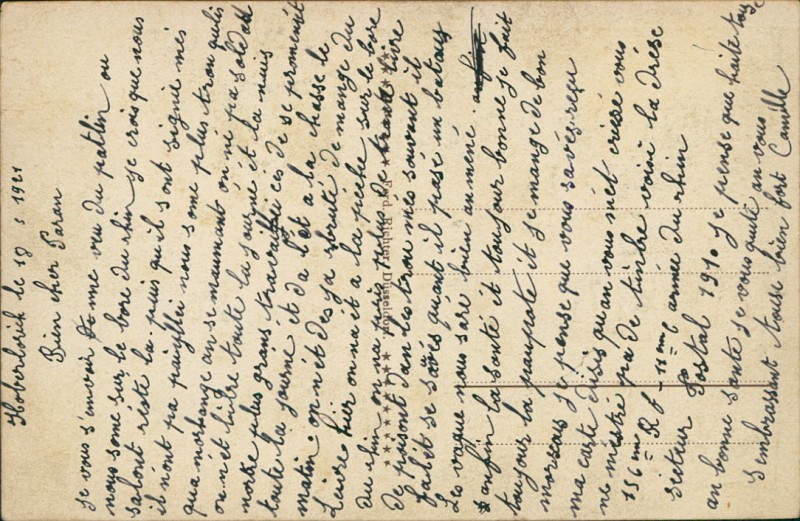 Hoberlarick le 18 5 1921
Bien cher Paran
Je vous s'envoir Donne veu du patlin ou
nous some sur le bore du rhin Je crois que nous
salont réste la puis qu'il sont signié mes
il n'ont pa païyllei nous some plus tranquils
qua morhange an se maumant on né pa soldat
on n'ét libre toute la journé et la nuis
nortre plus grans travaille cés de se promenér
toute la journé et da l'ét a la chasse le
matin. on n'ét des ja abruté de mange du
Leivre hier on na ét a la pèche sur le bore
du rhin on na pris plus de trante livre
De poison dan les trou més souvant il
falét se sauvés quant il pasé un batau
Les vague nous saré bien anmené
anfin la santé it toujour bonne je fait
toujour la paupote it je mange de bon
morsaus je pense que vous savés reçu
ma carte disis quan vous m'ét crirré vous
ne mestré pa de tinbre voisi la drése
156eme R I - 11eme armée du rhin
secteur Postal 191. Je pense que haite tous
an bonne sante je vous quite an vous
s'embrassant touse bien fort Camille